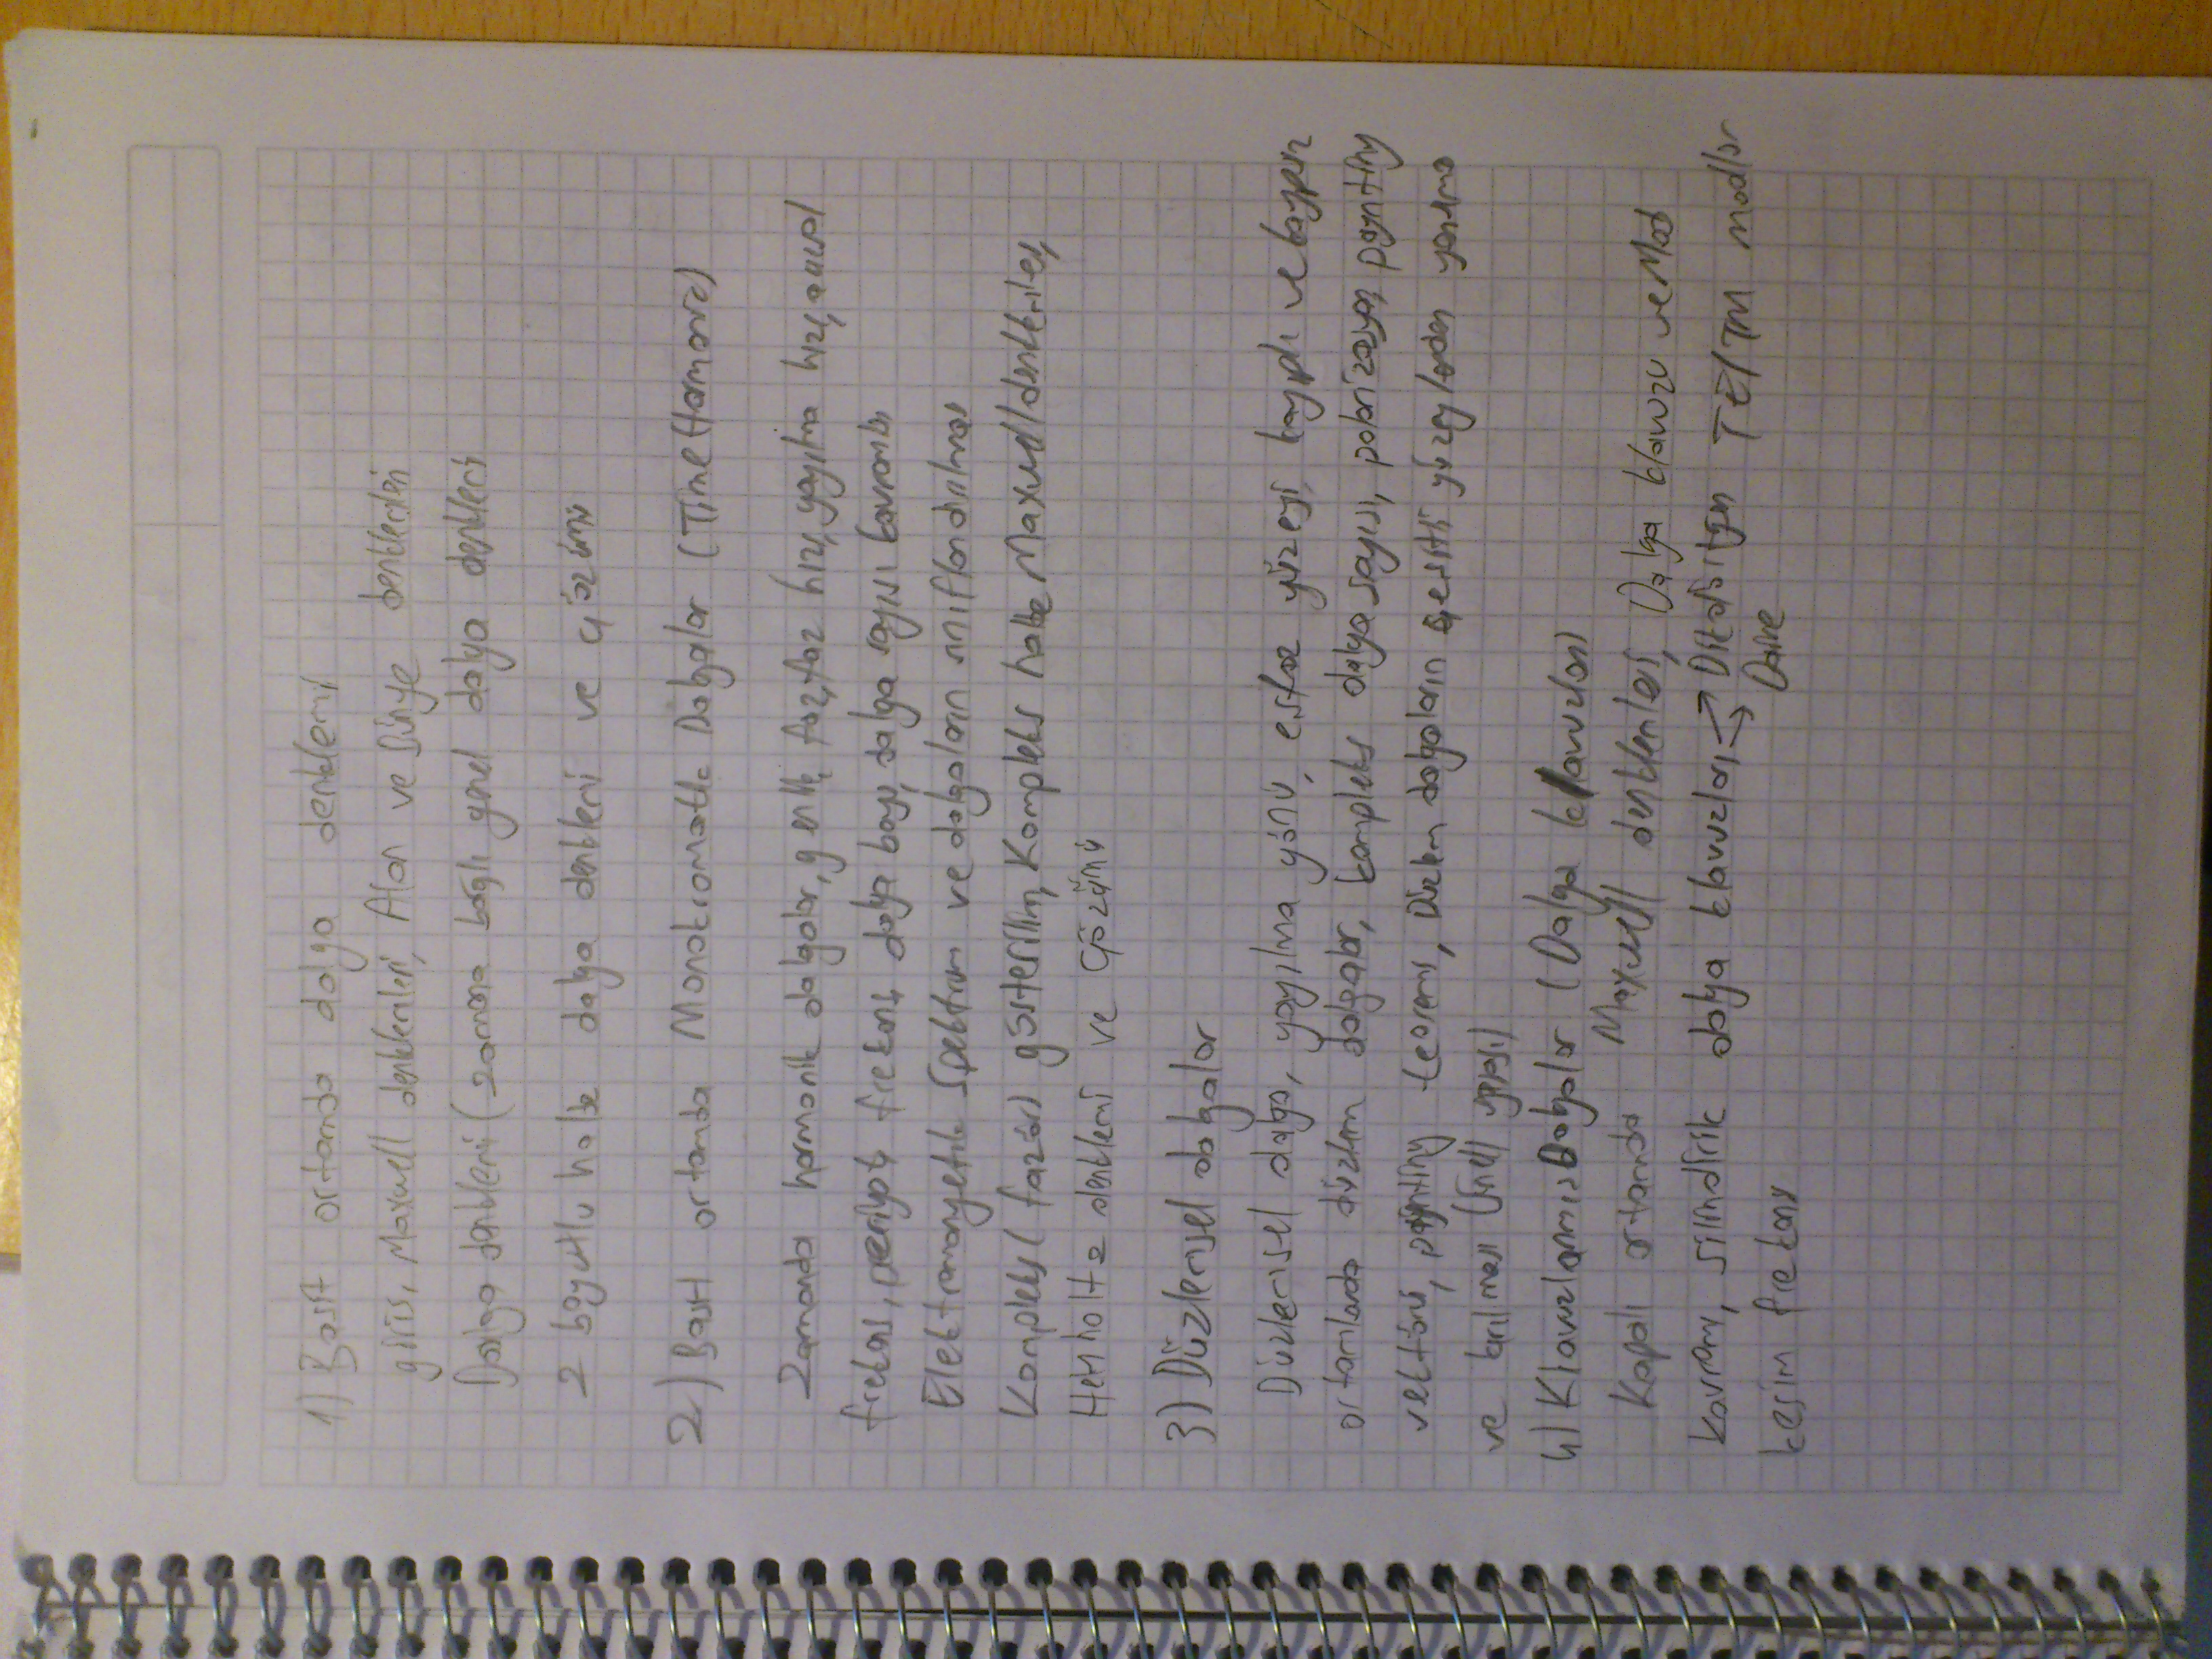 1) Basit ortamda dalga denklemi
giriş, Maxwell denklemleri, Alan ve Bünye denklemleri
Dalga denklemi (zamana bağlı genel dalga denklemi
2 boyutlu halde dalga denklemi ve çözümü
2) Basit ortamda Monokromatik Dalgalar (Time Harmonic)
Zamanda harmonik dalgalar, genlik, faz, faz hızı, yayılma hızı, açısal
frekans, periyot, frekans, dalga boyu, dalga sayısı kavramları
Elektromanyetik Spektrum ve dalgaların sınıflandırılması
Kompleks (fazör) gösterilim, Kompleks halde Maxwell denklemleri,
Helmholtz denklemi ve çözümü
3) Düzlemsel dalgalar
Düzlemsel dalga, yayılma yönü, eşfaz yüzeyi, kayıplı ve kayıpsız
ortamlarda düzlem dalgalar, kompleks dalga sayısı, polarizasyon, poynting
vektörü, poynting teoremi, Düzlem dalgaların çeşitli yüzeylerden yansıma
ve kırılması (Snell yasası)
4) Klavuzlanmış Dalgalar (Dalga klavuzları)
Kapalı ortamda Maxwell denklemleri, Dalga klavuzu ve Mod
kavramı, silindirik dalga klavuzları, → Dikdörtgen TE/TM modlar
→ Daire
kesim frekansı